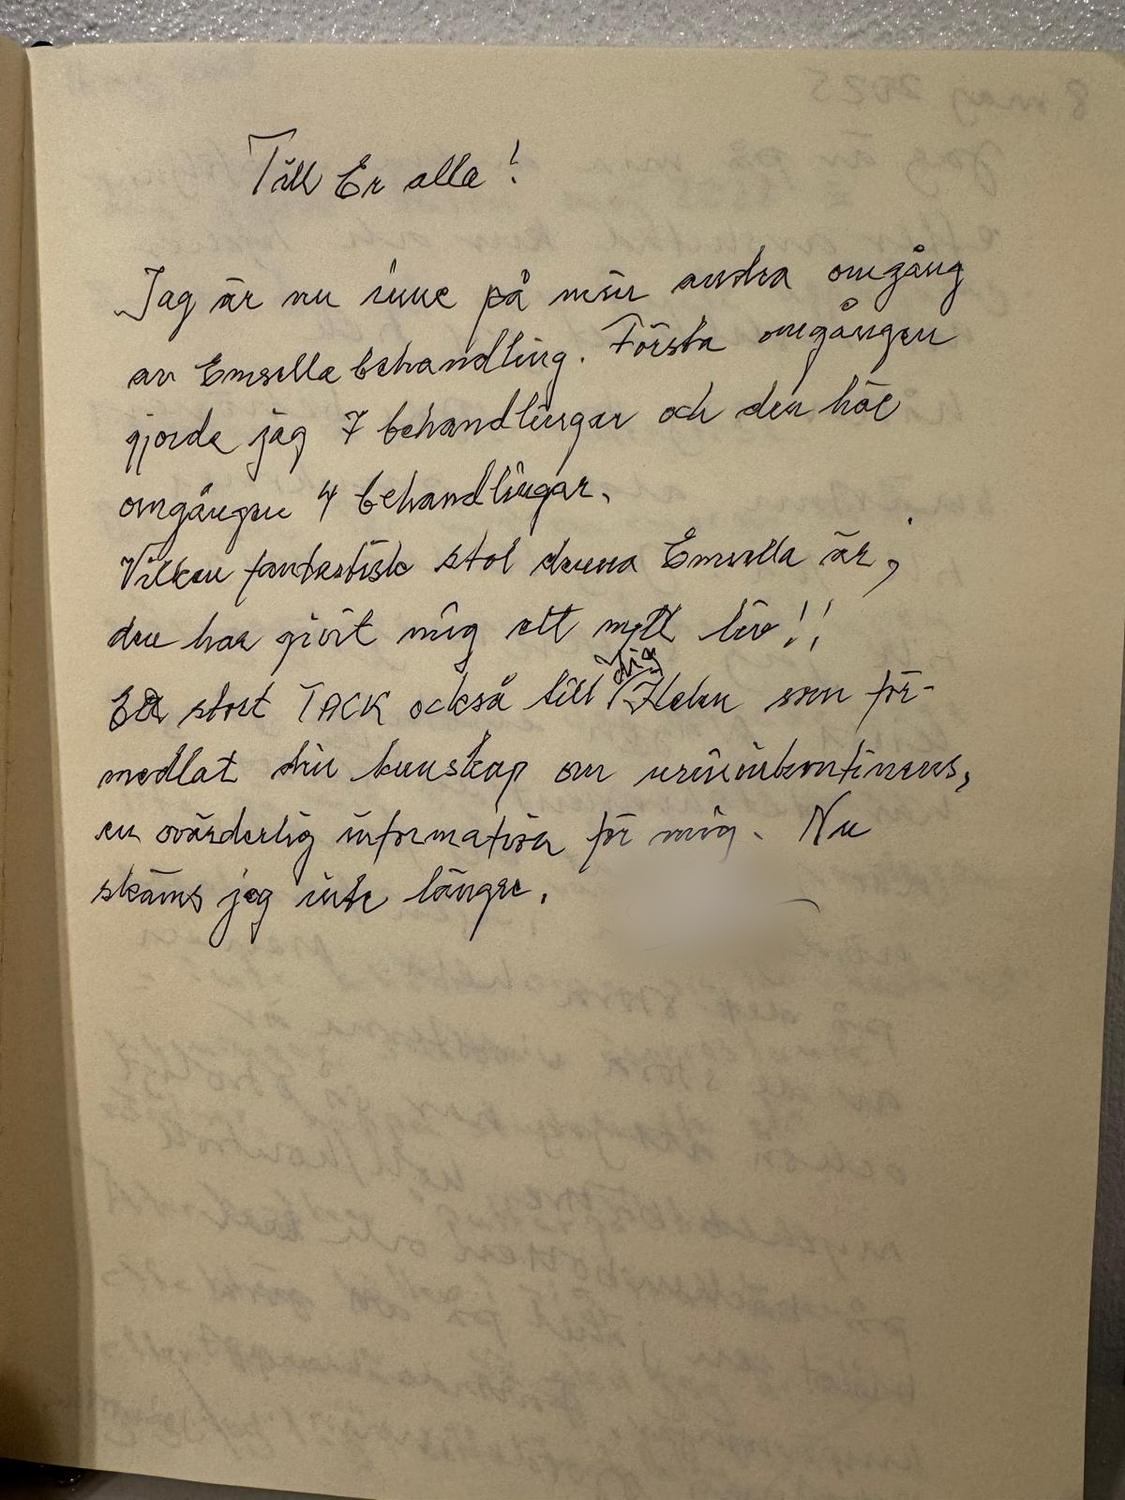 Till Er alla!
Jag är nu inne på min andra omgång
av Emsella behandling. Första omgången
gjorde jag 7 behandlingar och den här
omgången 4 behandlingar.
Vilken fantastisk stol denna Emsella är,
den har givit mig ett nytt liv!!
Ett stort TACK också till dig Helen som för-
medlat din kunskap om urininkontinens,
en ovärderlig information för mig. Nu
skäms jag inte längre.